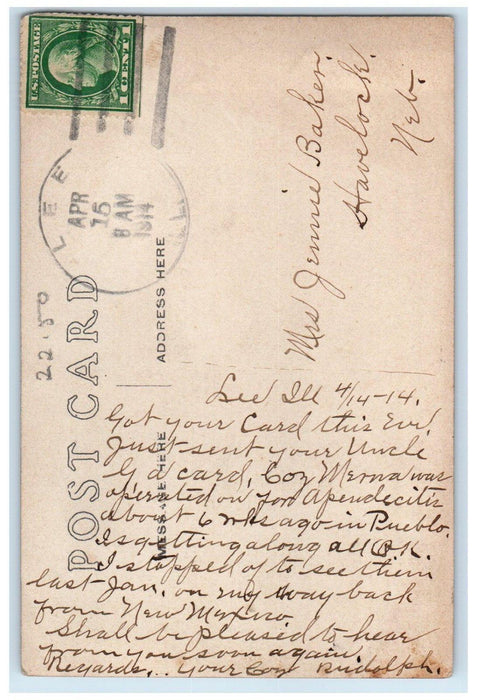 U.S. POSTAGE
1 CENT 1
LEE
ILL
APR
15
8 AM
1914
22.50
POST CARD
ADDRESS HERE
MESSAGE HERE
Mrs Jennie Baker.
Havelock.
Neb.
Lee Ill 4/14-14.
Got your Card this Eve.
Just sent your Uncle
G a card, Coz Merna was
operated on for Apendecitis
about 6 wks ago in Pueblo.
Is getting along all O.K.
I stopped of to see them
last Jan. on my way back
from New Mexico
Shall be pleased to hear
from you soon again
Regards.. Your Coz Rudolph.